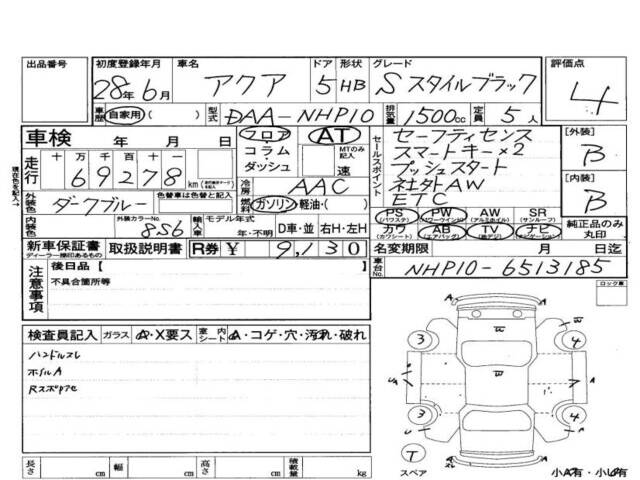 出品番号 初度登録年月 車名 ドア 形状 グレード 評価点
28年6月 アクア 5 HB Sスタイルブラック 4
車歴 自家用( ) 型式 DAA-NHP10 排気量 1500cc 定員 5人
車検 年 月 日 フロア コラム・ダッシュ AT MTのみ記入 速
セールスポイント セーフティセンス
スマートキー×2
プッシュスタート
社外AW
ETC
[外装] B
[内装] B
現在色を記入→
走行 十万千百十一
69278 km
冷房 AAC
外装色 ダークブルー 色替車は色替と記入 燃料 ガソリン・軽油・( )
内装色 外装カラーNo. 8S6 輸入車 モデル年式 年・不明 D車・並 右H・左H
PS (パワステ) PW (パワーウィンドウ) AW (アルミホイル) SR (サンルーフ)
カワ (カワシート) AB (エアバッグ) TV (地デジ) ナビ (ナビゲーション)
純正品のみ丸印
新車保証書 ディーラー捺印あるもの 取扱説明書 R券 ¥ 9,130 名変期限 月 日迄
注意事項 後日品[ ]
不具合箇所等
車台No. NHP10-6513185
ロック車
検査員記入 ガラス A・X要ス 室内シート A・コゲ・穴・汚れ・破れ
ハンドルスレ
ホイルA
3 4
3 4
T
スペア
小A有・小U有
長さ cm 幅 cm 高さ cm 積載量 kg